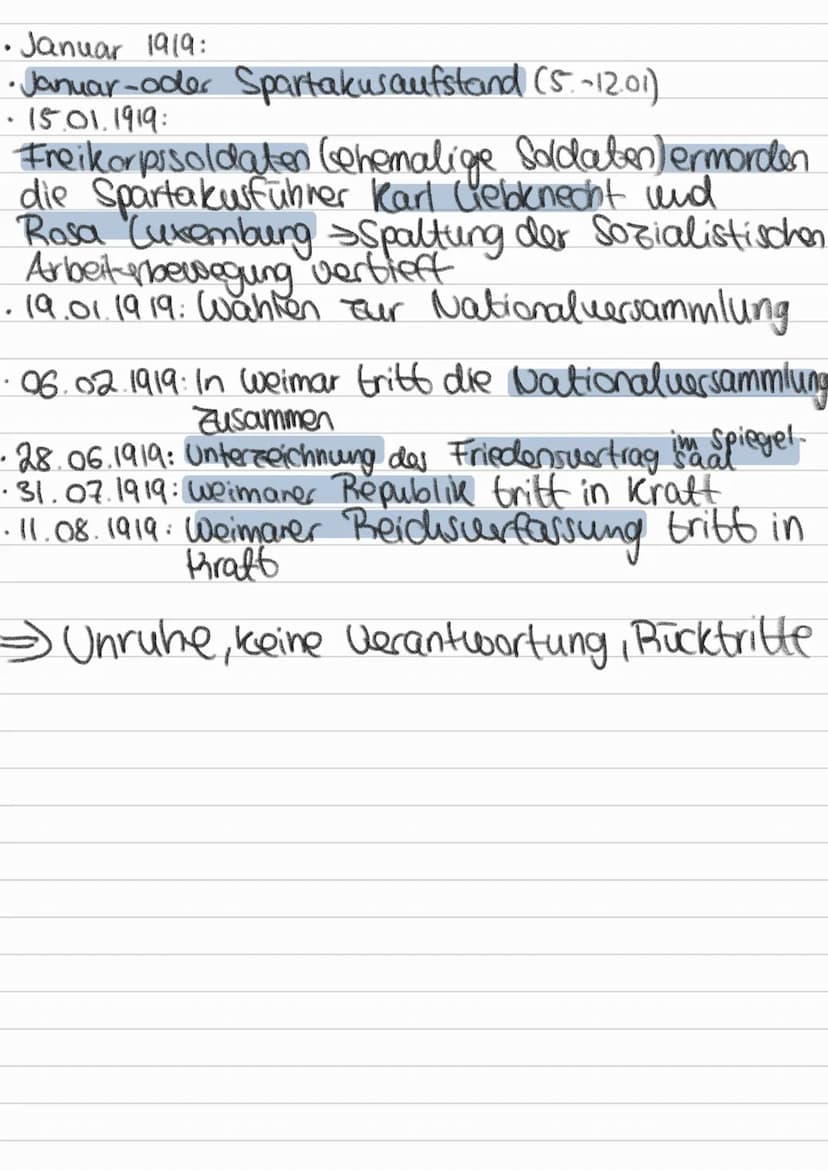 · Januar 1919:
· Januar-oder Spartakusaufstand (5.-12.01)
· 15.01.1919:
Freikorpssoldaten (ehemalige Soldaten) ermorden
die Spartakusführer Karl Liebknecht und
Rosa Luxemburg ⇒ Spaltung der Sozialistischen
Arbeiterbewegung vertieft
· 19.01.1919: Wahlen zur Nationalversammlung
· 06.02.1919: In Weimar tritt die Nationalversammlung
zusammen
· 28.06.1919: Unterzeichnung des Friedensvertrag im Spiegel-
saal
· 31.07.1919: Weimarer Republik tritt in Kraft
· 11.08.1919: Weimarer Reichsverfassung tritt in
Kraft
⇒ Unruhe, keine Verantwortung, Rücktritte